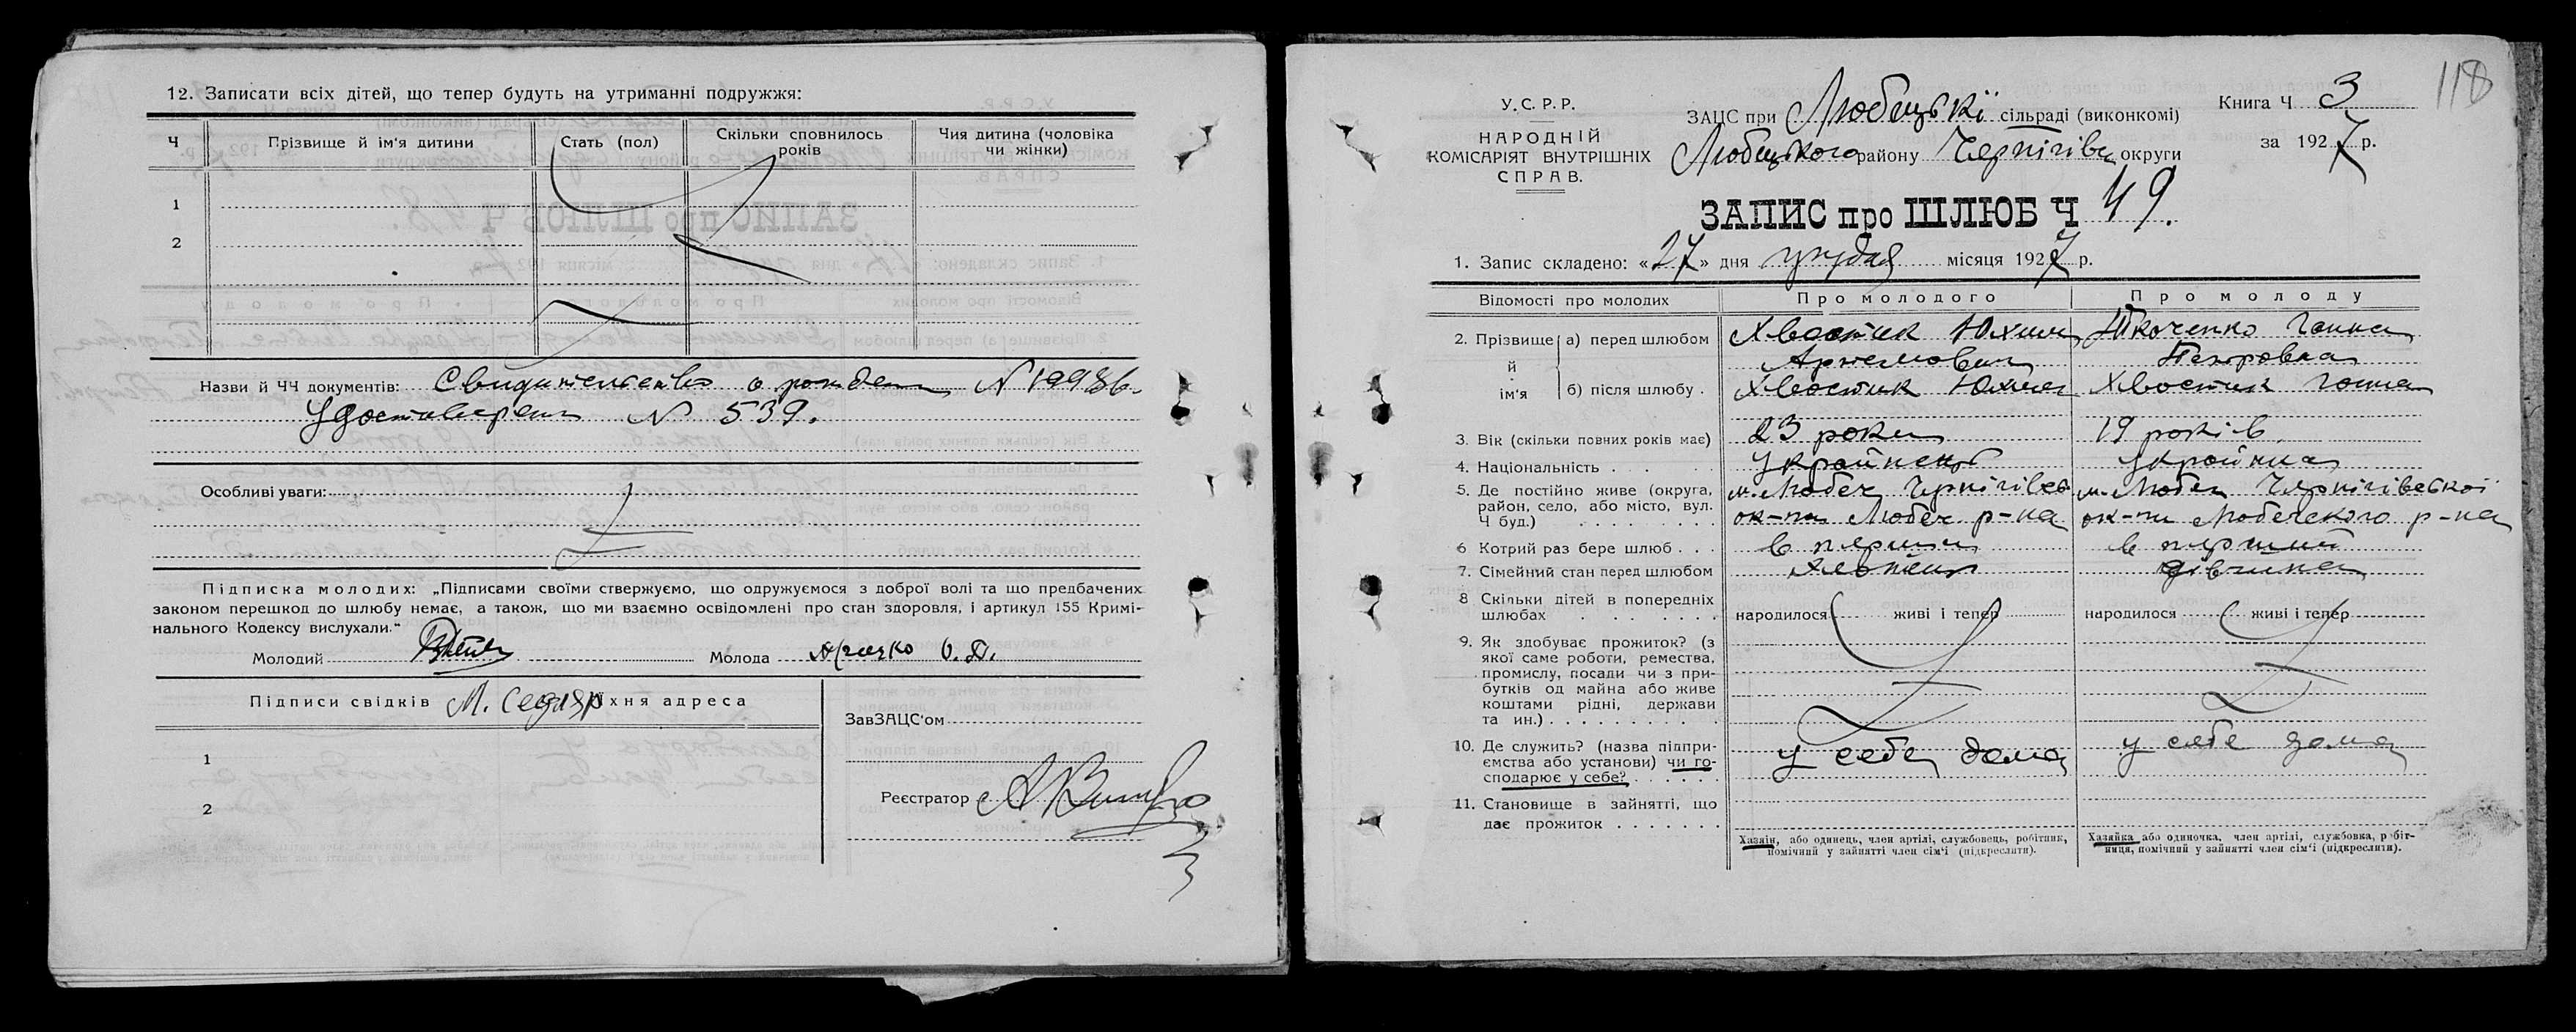 12. Записати всіх дітей, що тепер будуть на утриманні подружжя:
Ч
Прізвище й ім'я дитини
Стать (пол)
Скільки сповнилось
років
Чия дитина (чоловіка
чи жінки)
1
2
Назви й ЧЧ документів: Свидительство о рожден N 19986.
Удостоверен N 539.
Особливі уваги:
Підписка молодих: „Підписами своїми стверджуємо, що одружуємося з доброї волі та що предбачених
законом перешкод до шлюбу немає, а також, що ми взаємно освідомлені про стан здоровля, і артикул 155 Кримі-
нального Кодексу вислухали."
Молодий
Молода
Підписи свідків М. Седляр їхня адреса
1
2
ЗавЗАЦС'ом
Реєстратор
118
У.С.Р.Р.
НАРОДНІЙ
КОМІСАРІЯТ ВНУТРІШНІХ
СПРАВ.
ЗАЦС при Любецькії сільраді (виконкомі)
Любецького району Чернігівс округи
Книга Ч 3
за 1927 р.
ЗАПИС про ШЛЮБ Ч 49.
1. Запис складено: «27» дня грудня місяця 1927 р.
Відомості про молодих
Про молодого
Про молоду
2. Прізвище й ім'я
а) перед шлюбом
Хвостик Юхим
Артемович
Ткаченко Ганна
Петровна
б) після шлюбу.
Хвостик Юхим
Хвостик Ганна
3. Вік (скільки повних років має)
23 роки
19 років
4. Національність
Українець
Українка
5. Де постійно живе (округа,
район, село, або місто, вул.
Ч буд.)
м. Любеч Чернігівсь
ок-ги Любеч р-на
м. Любеч Чернігівської
ок-ги Любечского р-на
6 Котрий раз бере шлюб
в перший
в перший
7. Сімейний стан перед шлюбом
Хлопець
дівчина
8 Скільки дітей в попередніх
шлюбах
народилося живі і тепер
народилося живі і тепер
9. Як здобуває прожиток? (з
якої саме роботи, ремества,
промислу, посади чи з при-
бутків од майна або живе
коштами рідні, держави
та ин.)
10. Де служить? (назва підпри-
ємства або установи) чи го-
сподарює у себе?
у себе дома
у себе дома
11. Становище в зайнятті, що
дає прожиток
Хазяїн, або одинець, член артілі, службовець, робітник,
помічний у зайнятті член сім'ї (підкреслити).
Хазяйка або одиночка, член артілі, службовка, робіт-
ниця, помічний у зайнятті член сім'ї (підкреслити).